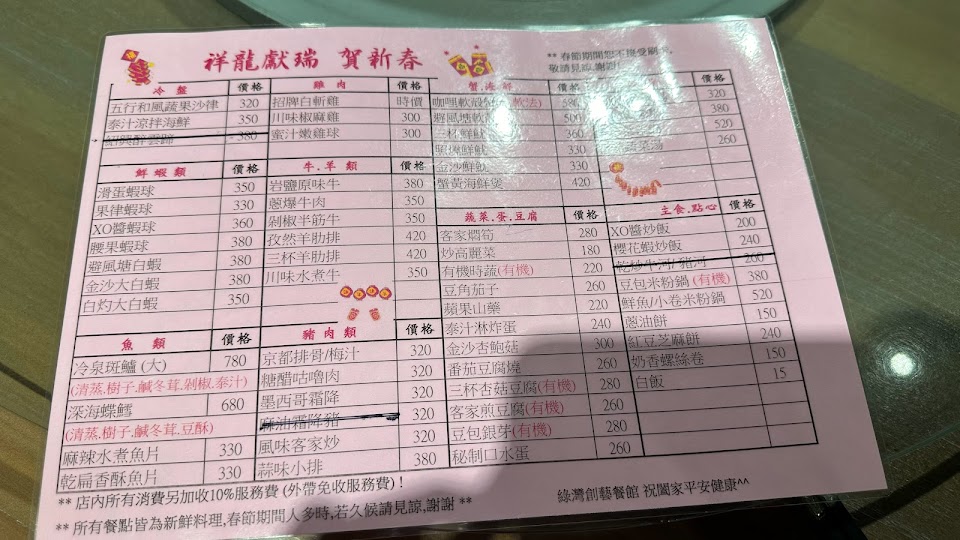 祥龍獻瑞 賀新春
** 春節期間恕不接受刷
敬請見諒,謝謝!
冷盤 價格
五行和風蔬果沙律 320
泰汁涼拌海鮮 350
紹興醉雲蹄 380
鮮蝦類 價格
滑蛋蝦球 350
果律蝦球 330
XO醬蝦球 360
腰果蝦球 380
避風塘白蝦 380
金沙大白蝦 380
白灼大白蝦 350
魚類 價格
冷泉斑鱸 (大) 780
(清蒸.樹子.鹹冬茸.剁椒.泰汁)
深海鰈鱈 680
(清蒸.樹子.鹹冬茸.豆酥)
麻辣水煮魚片 330
乾扁香酥魚片 330
雞肉 價格
招牌白斬雞 時價
川味椒麻雞 300
蜜汁嫩雞球 300
牛.羊類 價格
岩鹽原味牛 380
蔥爆牛肉 350
剁椒半筋牛 350
孜然羊肋排 420
三杯羊肋排 420
川味水煮牛 350
豬肉類 價格
京都排骨/梅汁 320
糖醋咕嚕肉 320
墨西哥霜降 320
麻油霜降豬 320
風味客家炒 320
蒜味小排 380
蟹.海鮮 價格
咖哩軟殼 580
避風塘軟 500
三杯鮮魷 360
鮮魷 330
金沙鮮魷 330
蟹黃海鮮煲 420
蔬菜.蛋.豆腐 價格
客家燜筍 280
炒高麗菜 180
有機時蔬(有機) 220
豆角茄子 260
蘋果山藥 220
泰汁淋炸蛋 240
金沙杏鮑菇 300
番茄豆腐燒 260
三杯杏菇豆腐(有機) 280
客家煎豆腐(有機) 260
豆包銀芽(有機) 280
秘制口水蛋 260
價格
320
380
520
260
主食.點心 價格
XO醬炒飯 200
櫻花蝦炒飯 240
乾炒牛河/豬河 200
豆包米粉鍋 (有機) 380
鮮魚/小卷米粉鍋 520
蔥油餅 150
紅豆芝麻餅 240
奶香螺絲卷 150
白飯 15
** 店內所有消費另加收10%服務費 (外帶免收服務費)！
** 所有餐點皆為新鮮料理,春節期間人多時,若久候請見諒,謝謝 **
綠灣創藝餐館 祝闔家平安健康^^